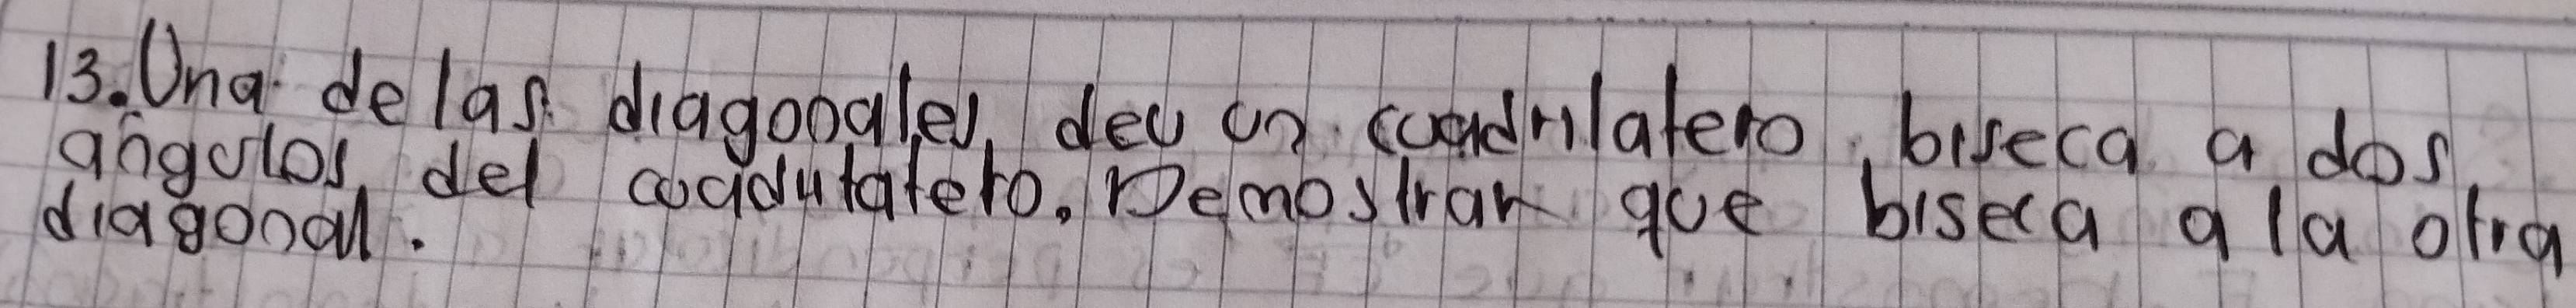 13. Una de las diagonales deu un cuadrilatero, biseca a dos
angulos del cuadrilatero. Demostrar que biseca a la otra
diagonal.